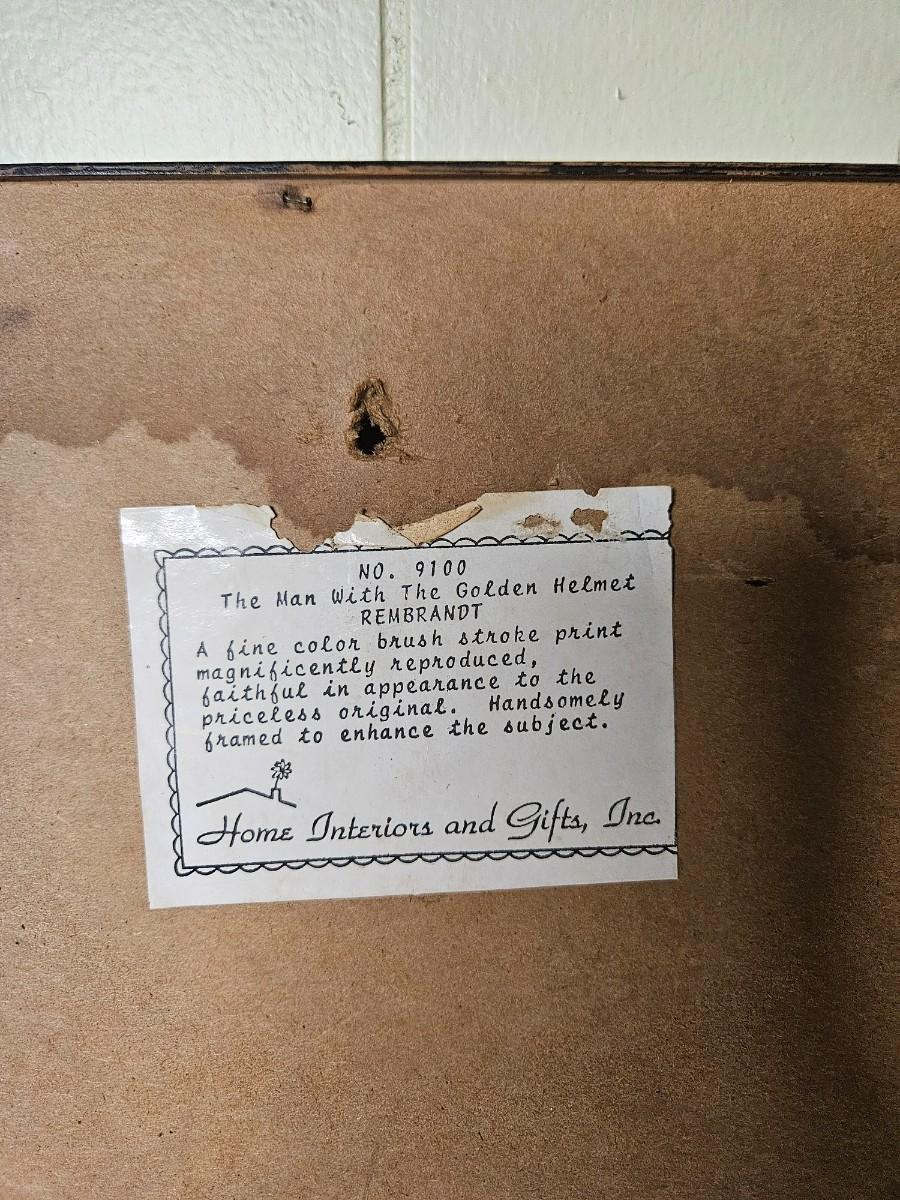 NO. 9100
The Man With The Golden Helmet
REMBRANDT
A fine color brush stroke print
magnificently reproduced,
faithful in appearance to the
priceless original. Handsomely
framed to enhance the subject.
Home Interiors and Gifts, Inc.